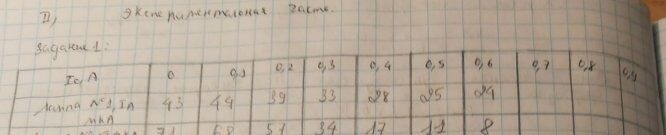 II, Экспериментальная часть.
Задание 1:
Ic, A 0 0,1 0,2 0,3 0,4 0,5 0,6 0,7 0,8 0,9
Лампа №1, IA 43 44 39 33 28 25 24
мкА
71 68 57 34 17 11 8